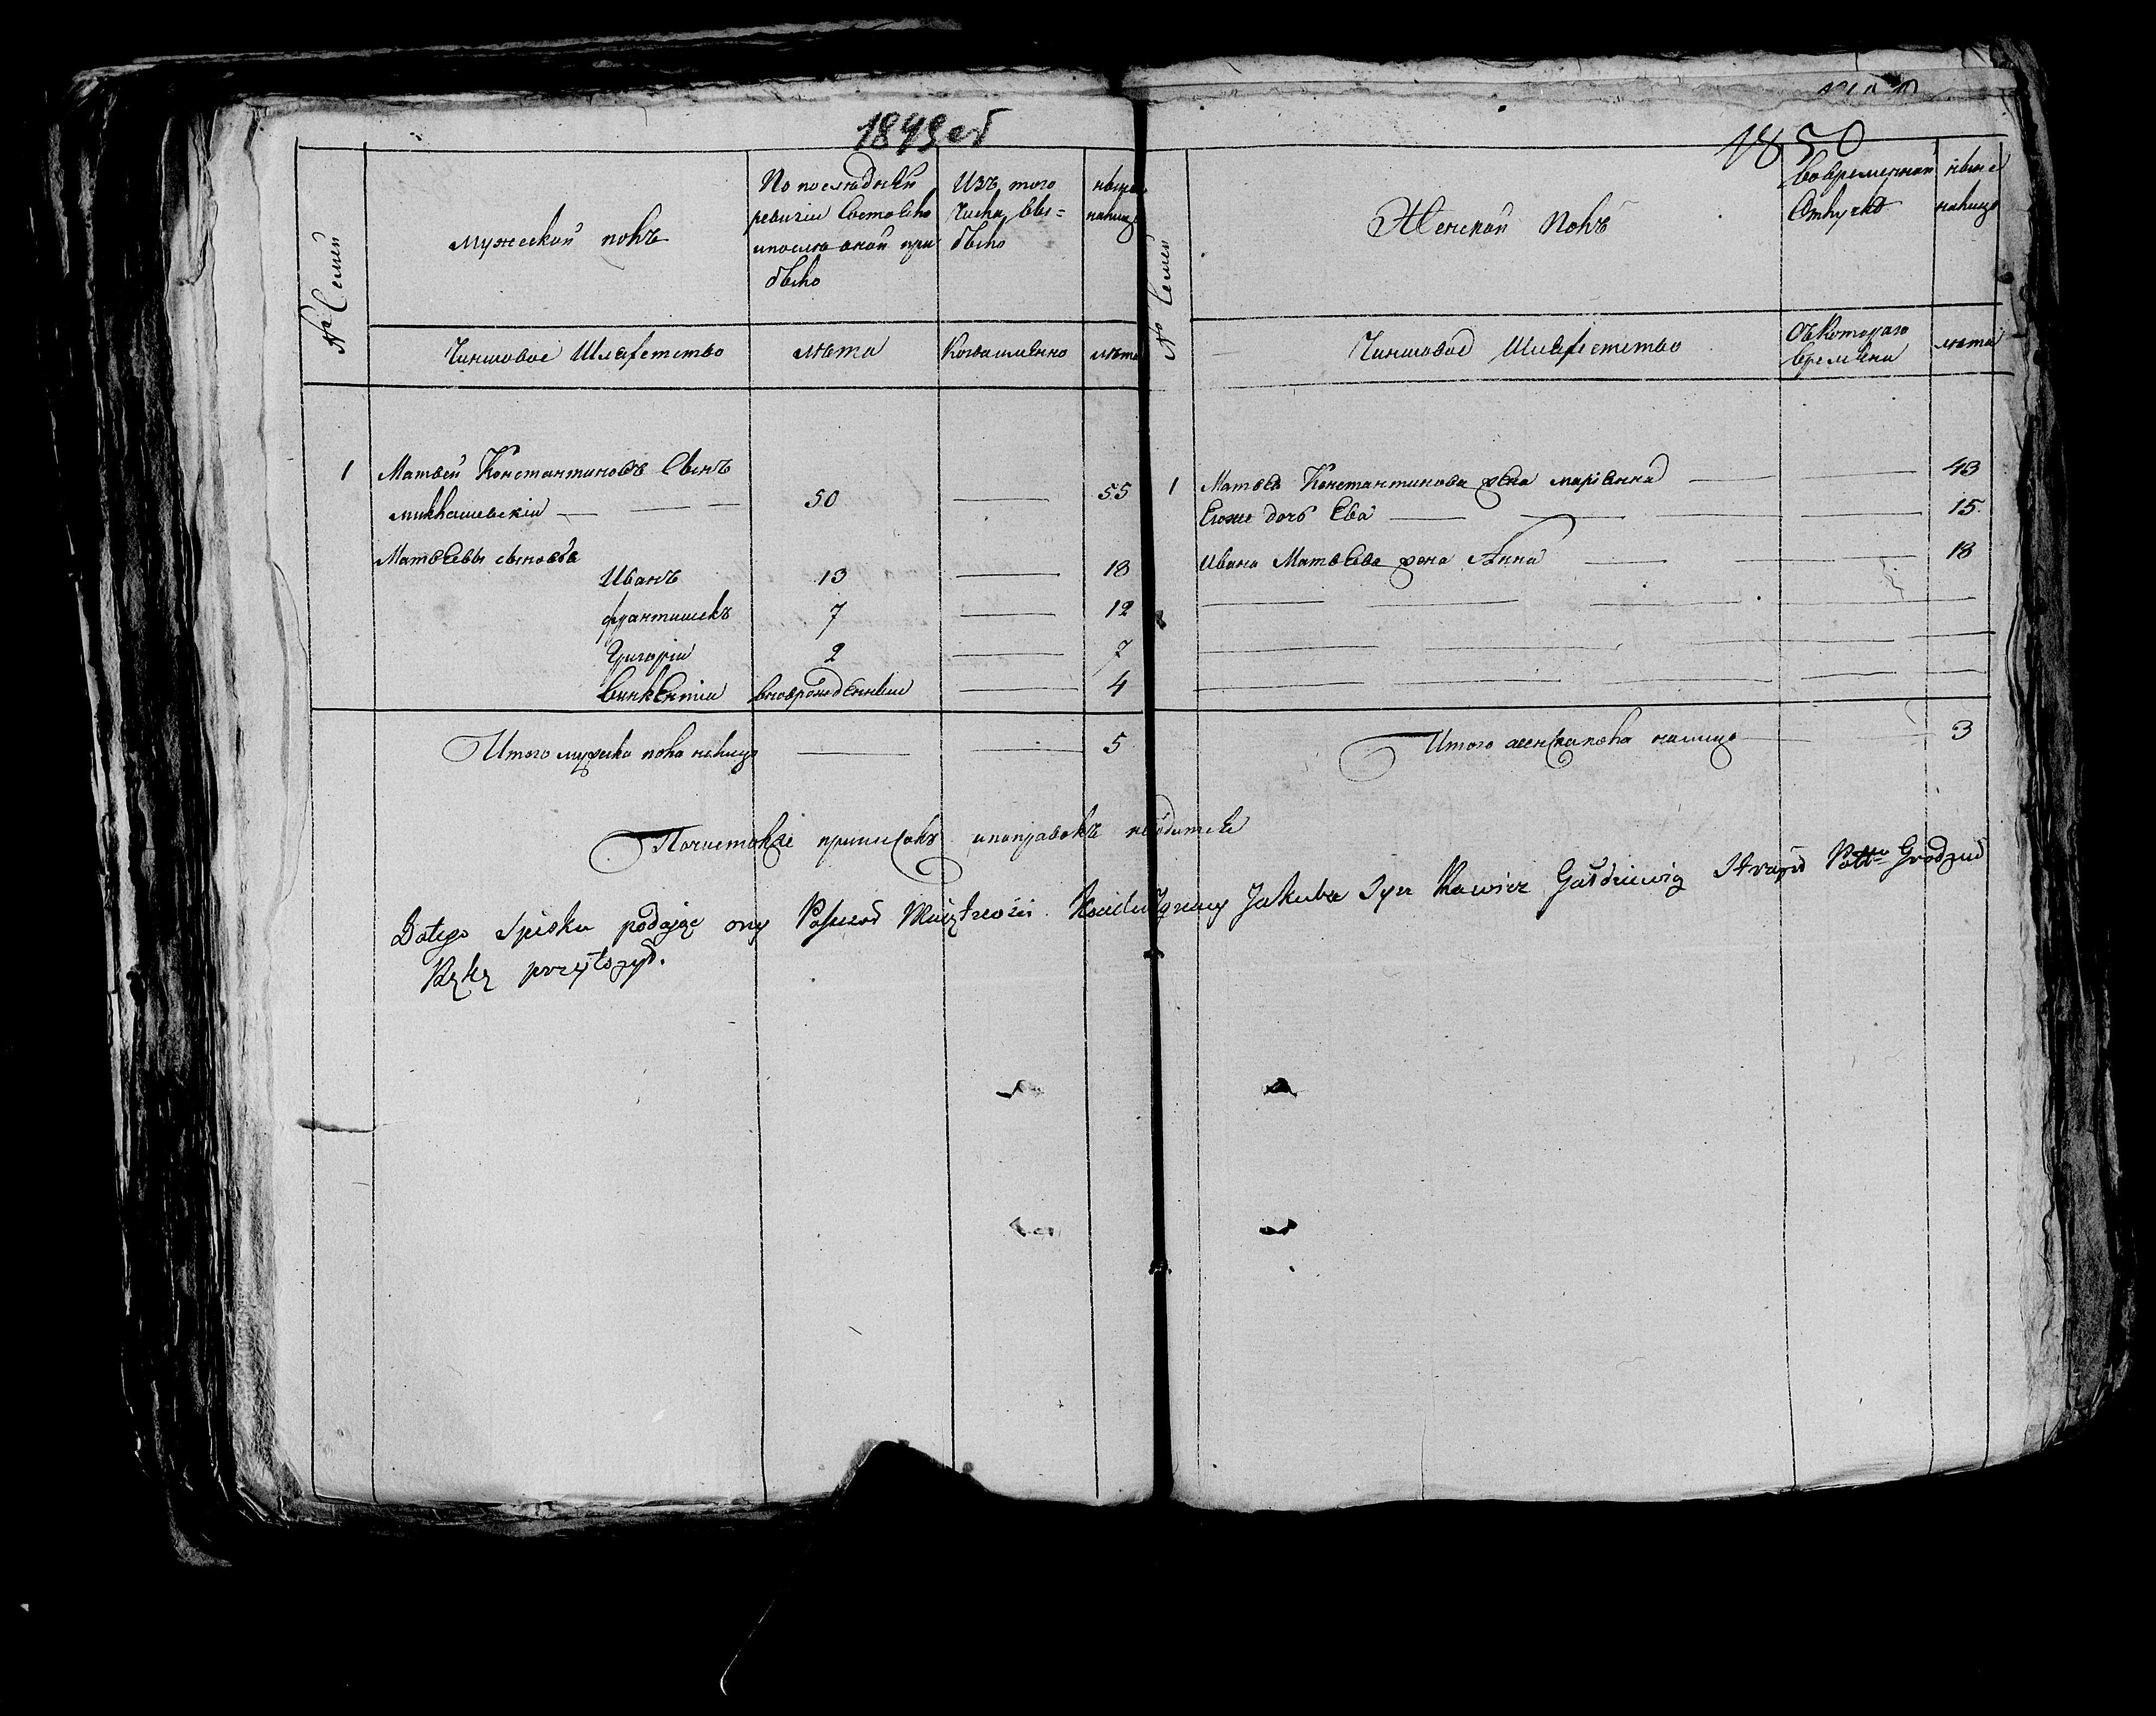 1849 об
1850
№ Семей
Мужескои полъ
По последнеи
ревизии состояло
и после оной при
было
Изъ того
числа вы=
было
ныне
налицо
Чиншовое Шляхетство
лета
Когда имянно
лета
1 Матвеи Константиновъ Сынъ
Миклашевскіи — 50 — 55
Матвеевы сыновья
Иванъ 13 — 18
Франтишекъ 7 — 12
Григоріи 2 — 7
Викентіи вноврожденныи — 4
Итого мужска пола налицо — 5
№ Семей
Женской Полъ
Вовременной
Отлучке
ныне
налицо
Чиншовое Шляхетство
Съ Котораго
времени
лета
1 Матвея Константинова жена Маріанна — 43
Ея же дочь Ева — 15
Ивана Матвеева жена Анна — 18
Итого женска пола налицо — 3
По чистоте приписокъ и поправокъ
Do tego Spisku podając ony Possesor Maiętności Jakub Syn Gasdziewicz Pttu Grodzień
Rękę przyłożył.